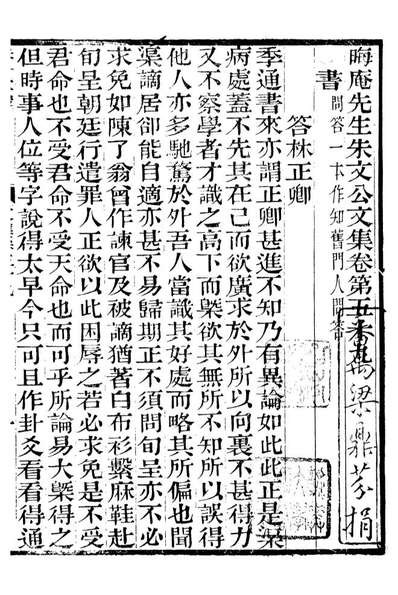 晦庵先生朱文公文集卷第五
番禺梁鼎芬捐
書 問答 一本作知舊門人問答
答林正卿
季通書來亦謂正卿甚進不知乃有異論如此此正是渠
病處蓋不先其在己而欲廣求於外所以向裏不甚得力
又不察學者才識之高下而槩欲其無所不知所以誤得
他人亦多馳騖於外吾人當識其好處而略其所偏也聞
渠謫居却能自適亦甚不易歸期正不須問旬呈亦不必
求免如陳了翁曾作諫官及被謫猶著白布衫繫麻鞋赴
旬呈朝廷行遣罪人正欲以此困辱之若必求免是不受
君命也不受君命不受天命也而可乎所論易大槩得之
但時事人位等字說得太早今只可且作卦爻看看得通